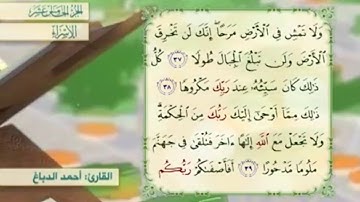 الجزء الخامس عشر
الإسراء
وَلَا تَمْشِ فِي الْأَرْضِ مَرَحًا ۖ إِنَّكَ لَن تَخْرِقَ
الْأَرْضَ وَلَن تَبْلُغَ الْجِبَالَ طُولًا ﴿٣٧﴾ كُلُّ
ذَٰلِكَ كَانَ سَيِّئُهُ عِندَ رَبِّكَ مَكْرُوهًا ﴿٣٨﴾
ذَٰلِكَ مِمَّا أَوْحَىٰ إِلَيْكَ رَبُّكَ مِنَ الْحِكْمَةِ ۗ
وَلَا تَجْعَلْ مَعَ اللَّهِ إِلَٰهًا آخَرَ فَتُلْقَىٰ فِي جَهَنَّمَ
مَلُومًا مَّدْحُورًا ﴿٣٩﴾ أَفَأَصْفَاكُمْ رَبُّكُم
القارئ: أحمد الدباغ